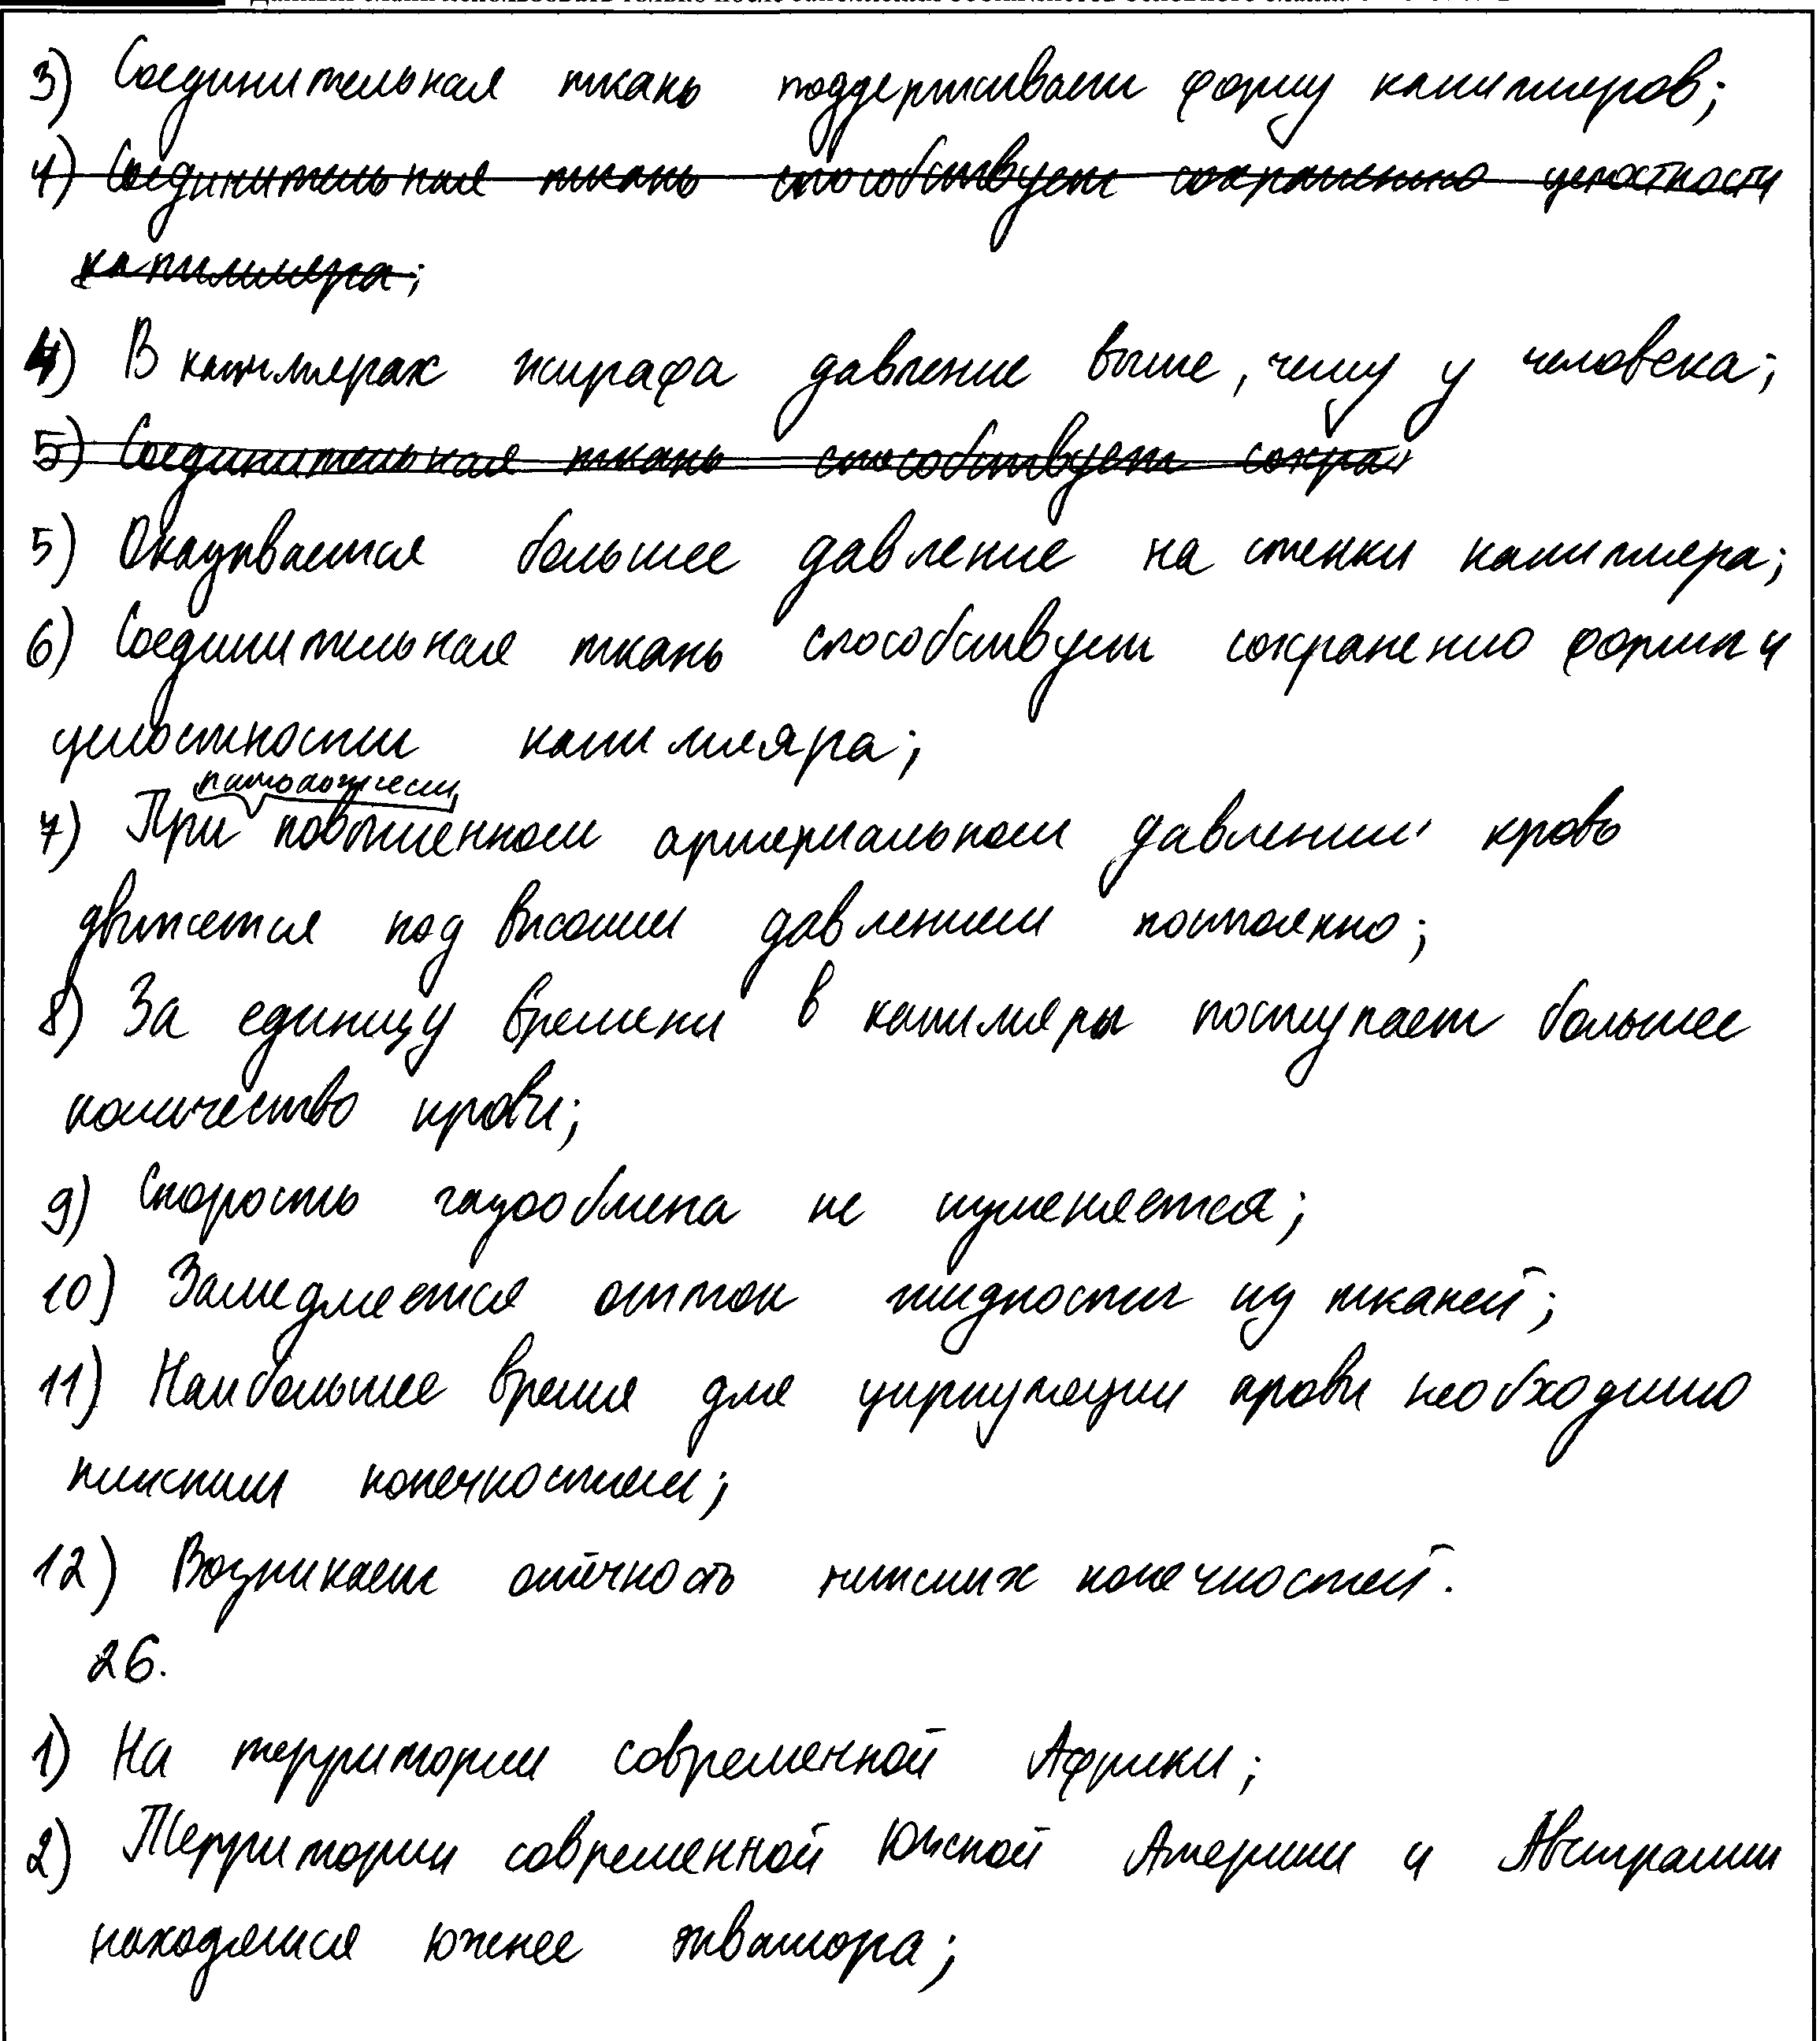 3) Соединительная ткань поддерживает форму капилляров;
4) Соединительная ткань способствует сохранению целостности
капилляра;
4) В капиллярах жирафа давление выше, чему у человека;
5) Соединительная ткань способствует сохра
5) Оказывается большее давление на стенки капилляра;
6) Соединительная ткань способствует сохранению формы и
целостности капилляра;
патологически
7) При повышенном артериальном давлении кровь
движется под высоким давлением постоянно;
8) За единицу времени в капилляры поступает большее
количество крови;
9) Скорость газообмена не изменяется;
10) Замедляется отток жидкости из тканей;
11) Наибольшее время для циркуляции крови необходимо
нижним конечностям;
12) Возникает отёчность нижних конечностей.
26.
1) На территории современной Африки;
2) Территории современной Южной Америки и Австралии
находятся южнее экватора;